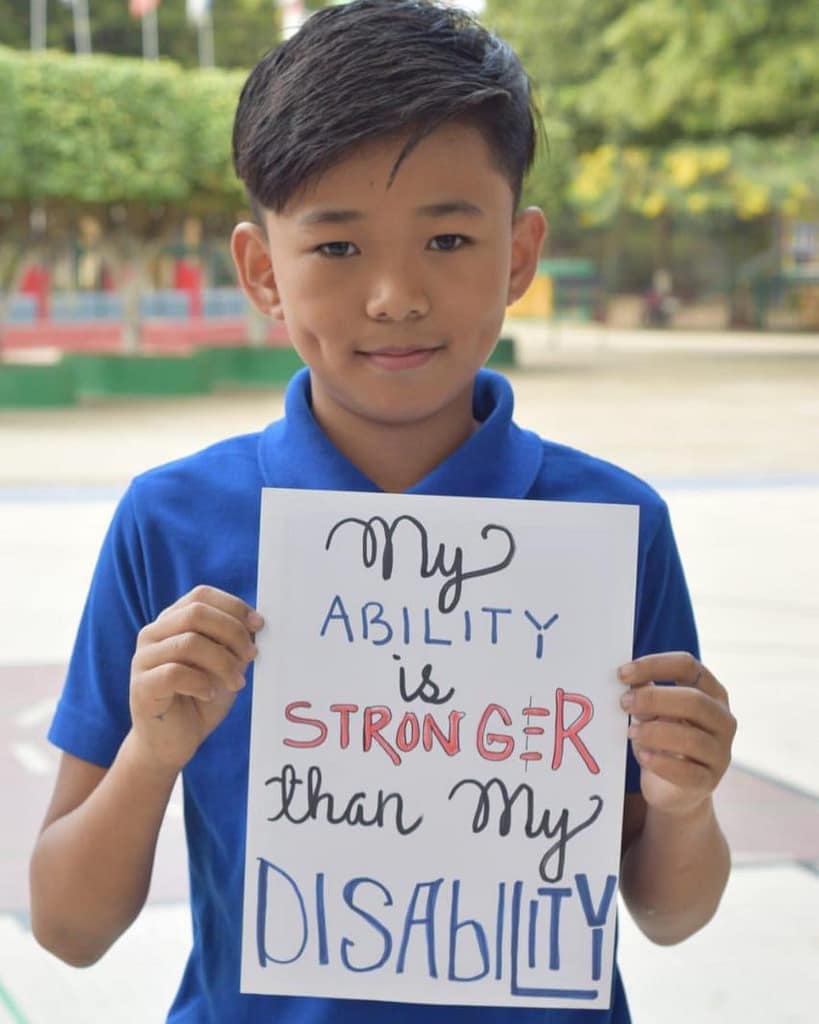 My
ABILITY
is
STRONGER
than My
DISAbILITY